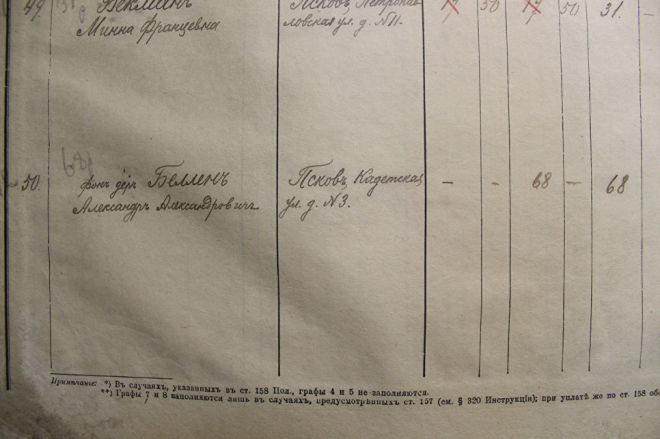 49. Бекманъ Псковъ, Петропав- 17 50 17 50 31. –
Минна Францевна ловская ул. д. №11.
68
50. фонъ деръ Белленъ Псковъ, Кадетская – – 68 – 68
Александръ Александровичъ ул. д. №3.
Примѣчаніе: *) Въ случаяхъ, указанныхъ въ ст. 158 Пол., графы 4 и 5 не заполняются.
**) Графы 7 и 8 заполняются лишь въ случаяхъ, предусмотрѣнныхъ ст. 157 (см. § 320 Инструкціи); при уплатѣ же по ст. 158 об